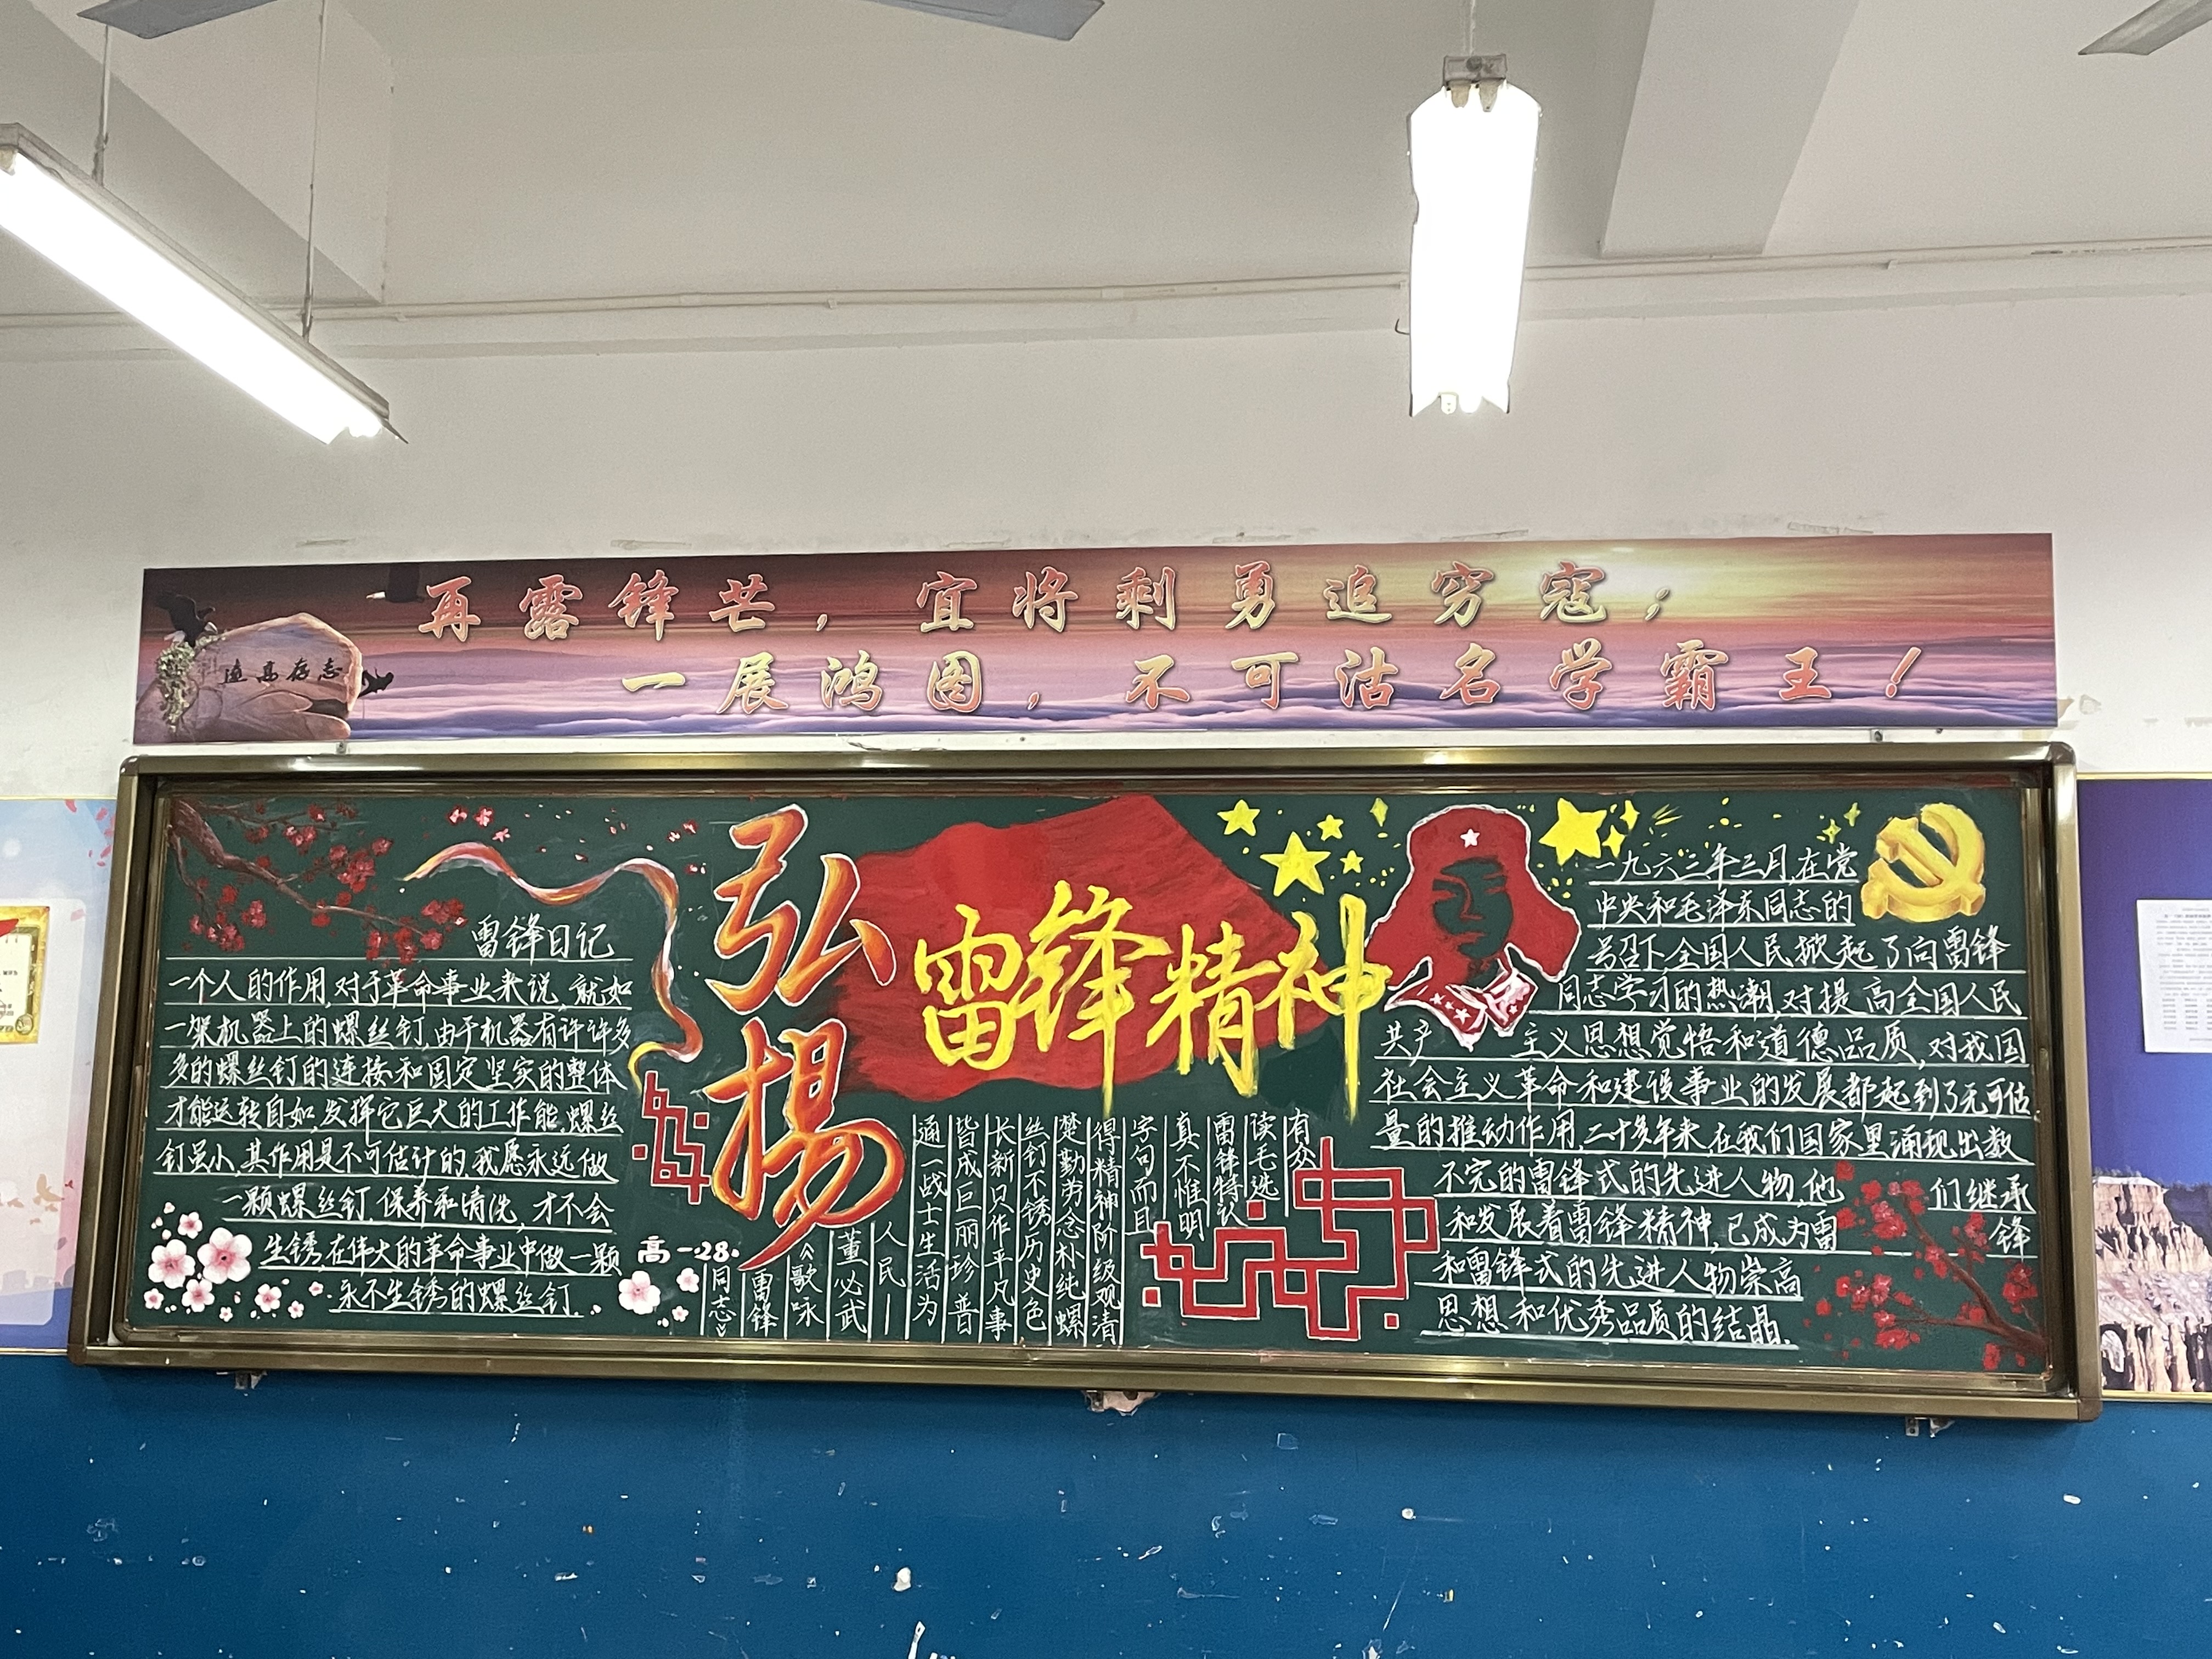 再露锋芒，宜将剩勇追穷寇；
一展鸿图，不可沽名学霸王！
遠高存志
弘揚
雷锋精神
雷锋日记
一个人的作用，对于革命事业来说，就如
一架机器上的螺丝钉，由于机器有许许多
多的螺丝钉的连接和固定坚实的整体
才能运转自如，发挥它巨大的工作能，螺丝
钉虽小，其作用是不可估计的，我愿永远做
一颗螺丝钉，保养和清洗，才不会
生锈，在伟大的革命事业中做一颗
永不生锈的螺丝钉。
高一28.
有众
读毛选
雷锋特认
真不惟明
字句而且
得精神阶级观清
楚勤劳念朴纯螺
丝钉不锈历史色
长新只作平凡事
皆成巨丽珍普
通一战士生活为
人民——
董必武
《歌咏
雷锋
同志》
一九六三年三月，在党
中央和毛泽东同志的
号召下全国人民掀起了向雷锋
同志学习的热潮，对提高全国人民
共产主义思想觉悟和道德品质，对我国
社会主义革命和建设事业的发展都起到了无可估
量的推动作用，二十多年来，在我们国家里涌现出数
不完的雷锋式的先进人物，他们继承
和发展着雷锋精神，已成为雷锋
和雷锋式的先进人物崇高
思想和优秀品质的结晶。